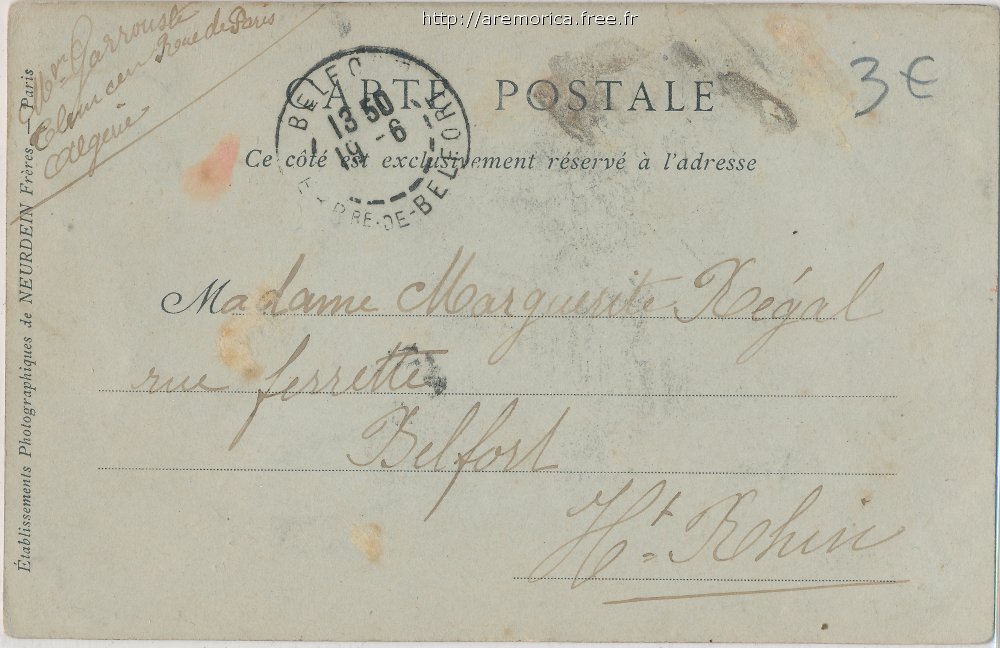 http://aremorica.free.fr
Garrouste
Tlemcen Route de Paris
Algérie
3€
CARTE POSTALE
Ce côté est exclusivement réservé à l'adresse
BELFO
13 50
19 -6
RE-DE-BELFORT
Établissements Photographiques de NEURDEIN Frères. — Paris
Madame Marguerite Régal
rue ferrette
Belfort
Ht. Rhin